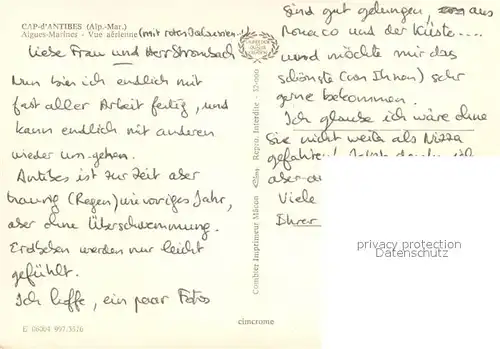 CAP-d'ANTIBES (Alp.-Mar.)
Aigues-Mariner - Vue aérienne (mit roten
Liebe Frau und Herr
Nun bin ich endlich mit
fast aller Arbeit fertig, und
kann endlich mit anderen
wieder um-gehen.
Antibes ist zur Zeit aber
traurig (Regen) wie voriges Jahr,
aber ohne Überschwemmung.
Erdbeben werden nur leicht
gefühlt.
Ich hoffe, ein paar Fotos
E 06004 997/5520
Combier Imprimeur Mâcon Repro. Interdite
cimcrome
Sind gut gelungen, aus
Monaco und der Küste....
und möchte mir das
schönste (von Ihnen) sehr
gerne bekommen.
Ich glaube ich wäre ohne
Sie nicht weiter als Nizza
gefahren!
aber
Viele
Ihrer
privacy protection
Datenschutz